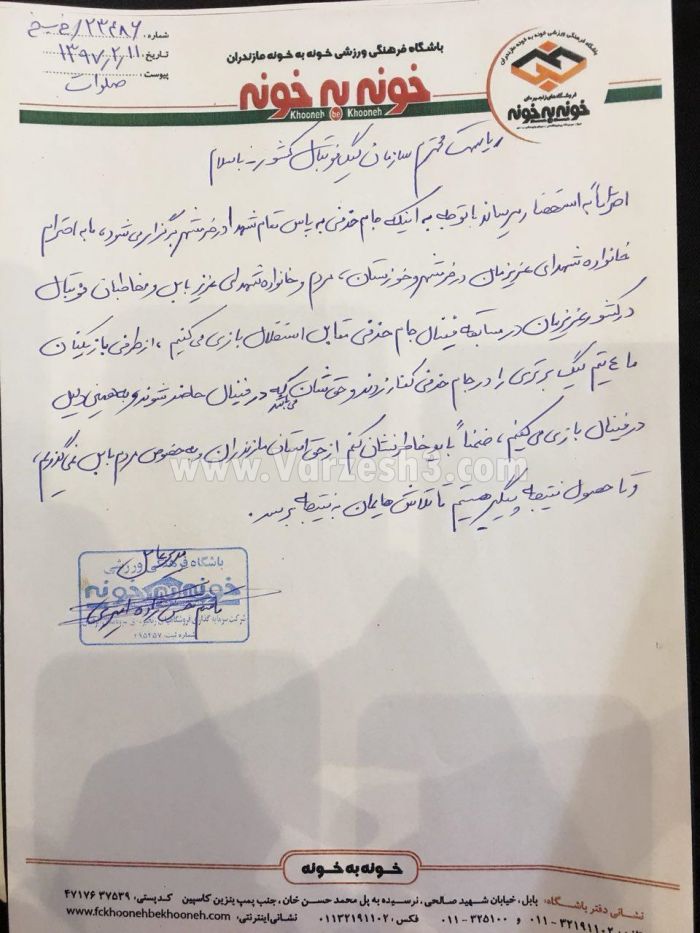 شماره: ۲۳۴۸۶/خ س خ
تاریخ: ۱۳۹۷/۲/۱۱
پیوست: صلوات
باشگاه فرهنگی ورزشی خونه به خونه مازندران
خونه به خونه
Khooneh be Khooneh
باشگاه فرهنگی ورزشی خونه به خونه مازندران
فروشگاه‌های زنجیره‌ای
خونه به خونه
ریاست محترم سازمان لیگ فوتبال کشور - باسلام
احتراماً به استحضار میرساند با توجه به اینکه جام حذفی به پاس مقام شهدا در خرمشهر برگزار می شود، ما به احترام
خانواده شهدای عزیزمان در خرمشهر و خوزستان، مردم و خانواده شهدای عزیز بابل و مخاطبان فوتبال
در کشور عزیزمان در مسابقه فینال جام حذفی مقابل استقلال بازی می کنیم، از طرفی بازیکنان
ما ۴ تیم لیگ برتری را در جام حذفی کنار زدند و حق شان می باشد که در فینال حاضر شوند و به همین دلیل
در فینال بازی می کنیم، ضمناً باید خاطر نشان کنم از حق استان مازندران و به خصوص مردم بابل نمی گذریم،
و تا حصول نتیجه پیگیر هستیم تا تلاش هایمان به نتیجه برسد.
www.Varzesh3.com
مدیرعامل
باشگاه فرهنگی ورزشی
خونه به خونه
شرکت سرمایه گذاری فروشگاه
شماره ثبت:
خونه به خونه
نشانی دفتر باشگاه: بابل، خیابان شهید صالحی، نرسیده به پل محمد حسن خان، جنب پمپ بنزین کاسپین کدپستی: ۴۷۱۷۶۳۷۵۳۹
۰۱۱-۳۲۱۹۱۱۰۲ و ۰۱۱-۳۲۵۱۰۰ فکس: ۰۱۱۳۲۱۹۱۱۰۲ نشانی اینترنتی: www.fckhoonehbekhooneh.com